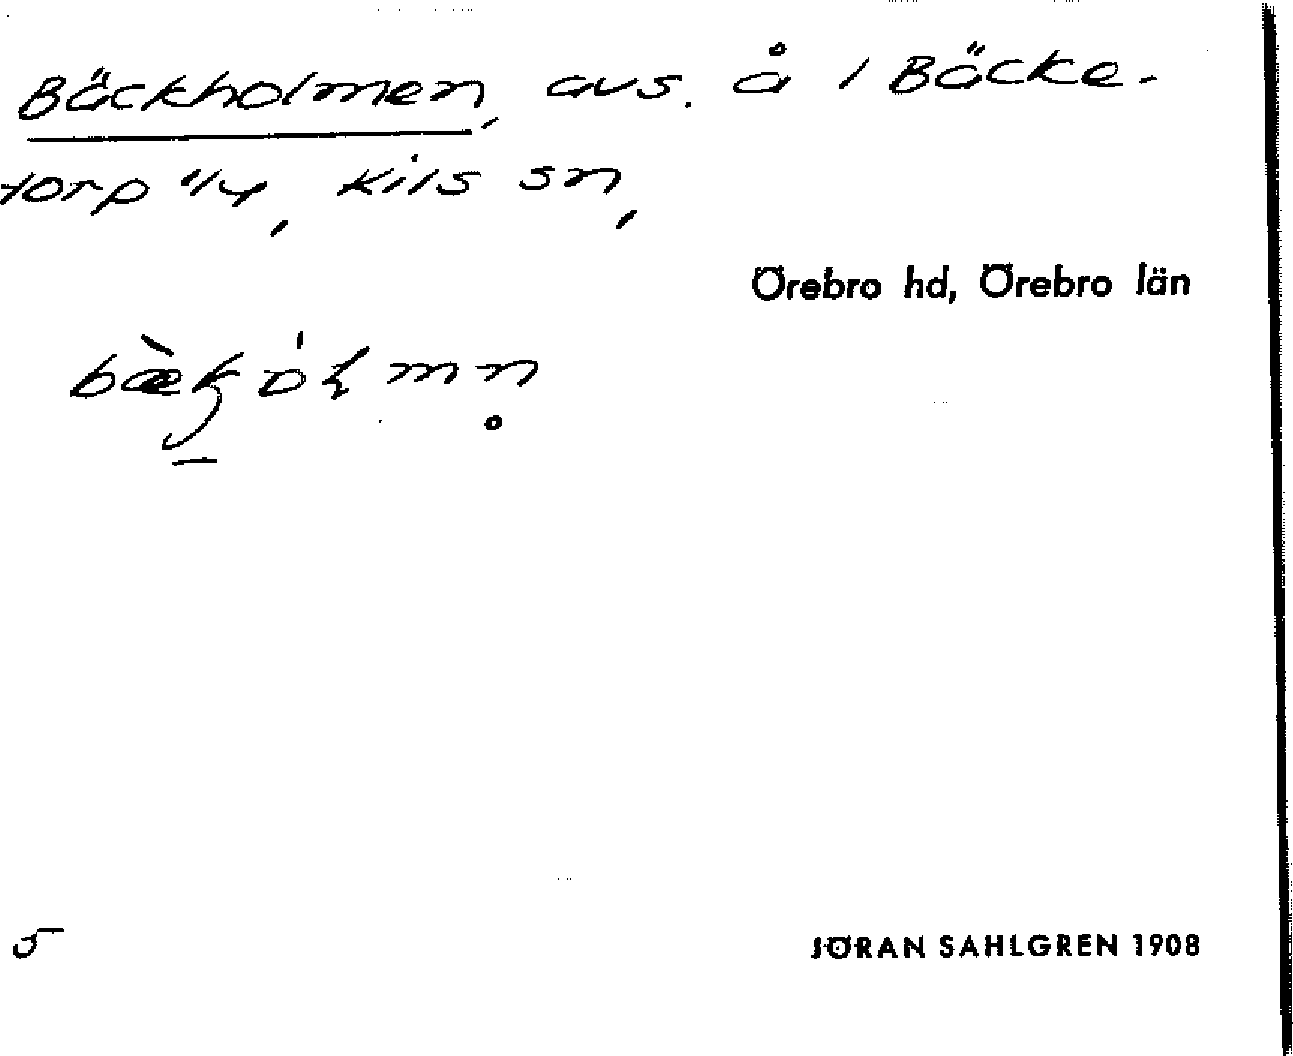 Bäckholmen, avs. å 1 Bäcke-
torp 1/4, Kils sn,
Örebro hd, Örebro län
5
JÖRAN SAHLGREN 1908